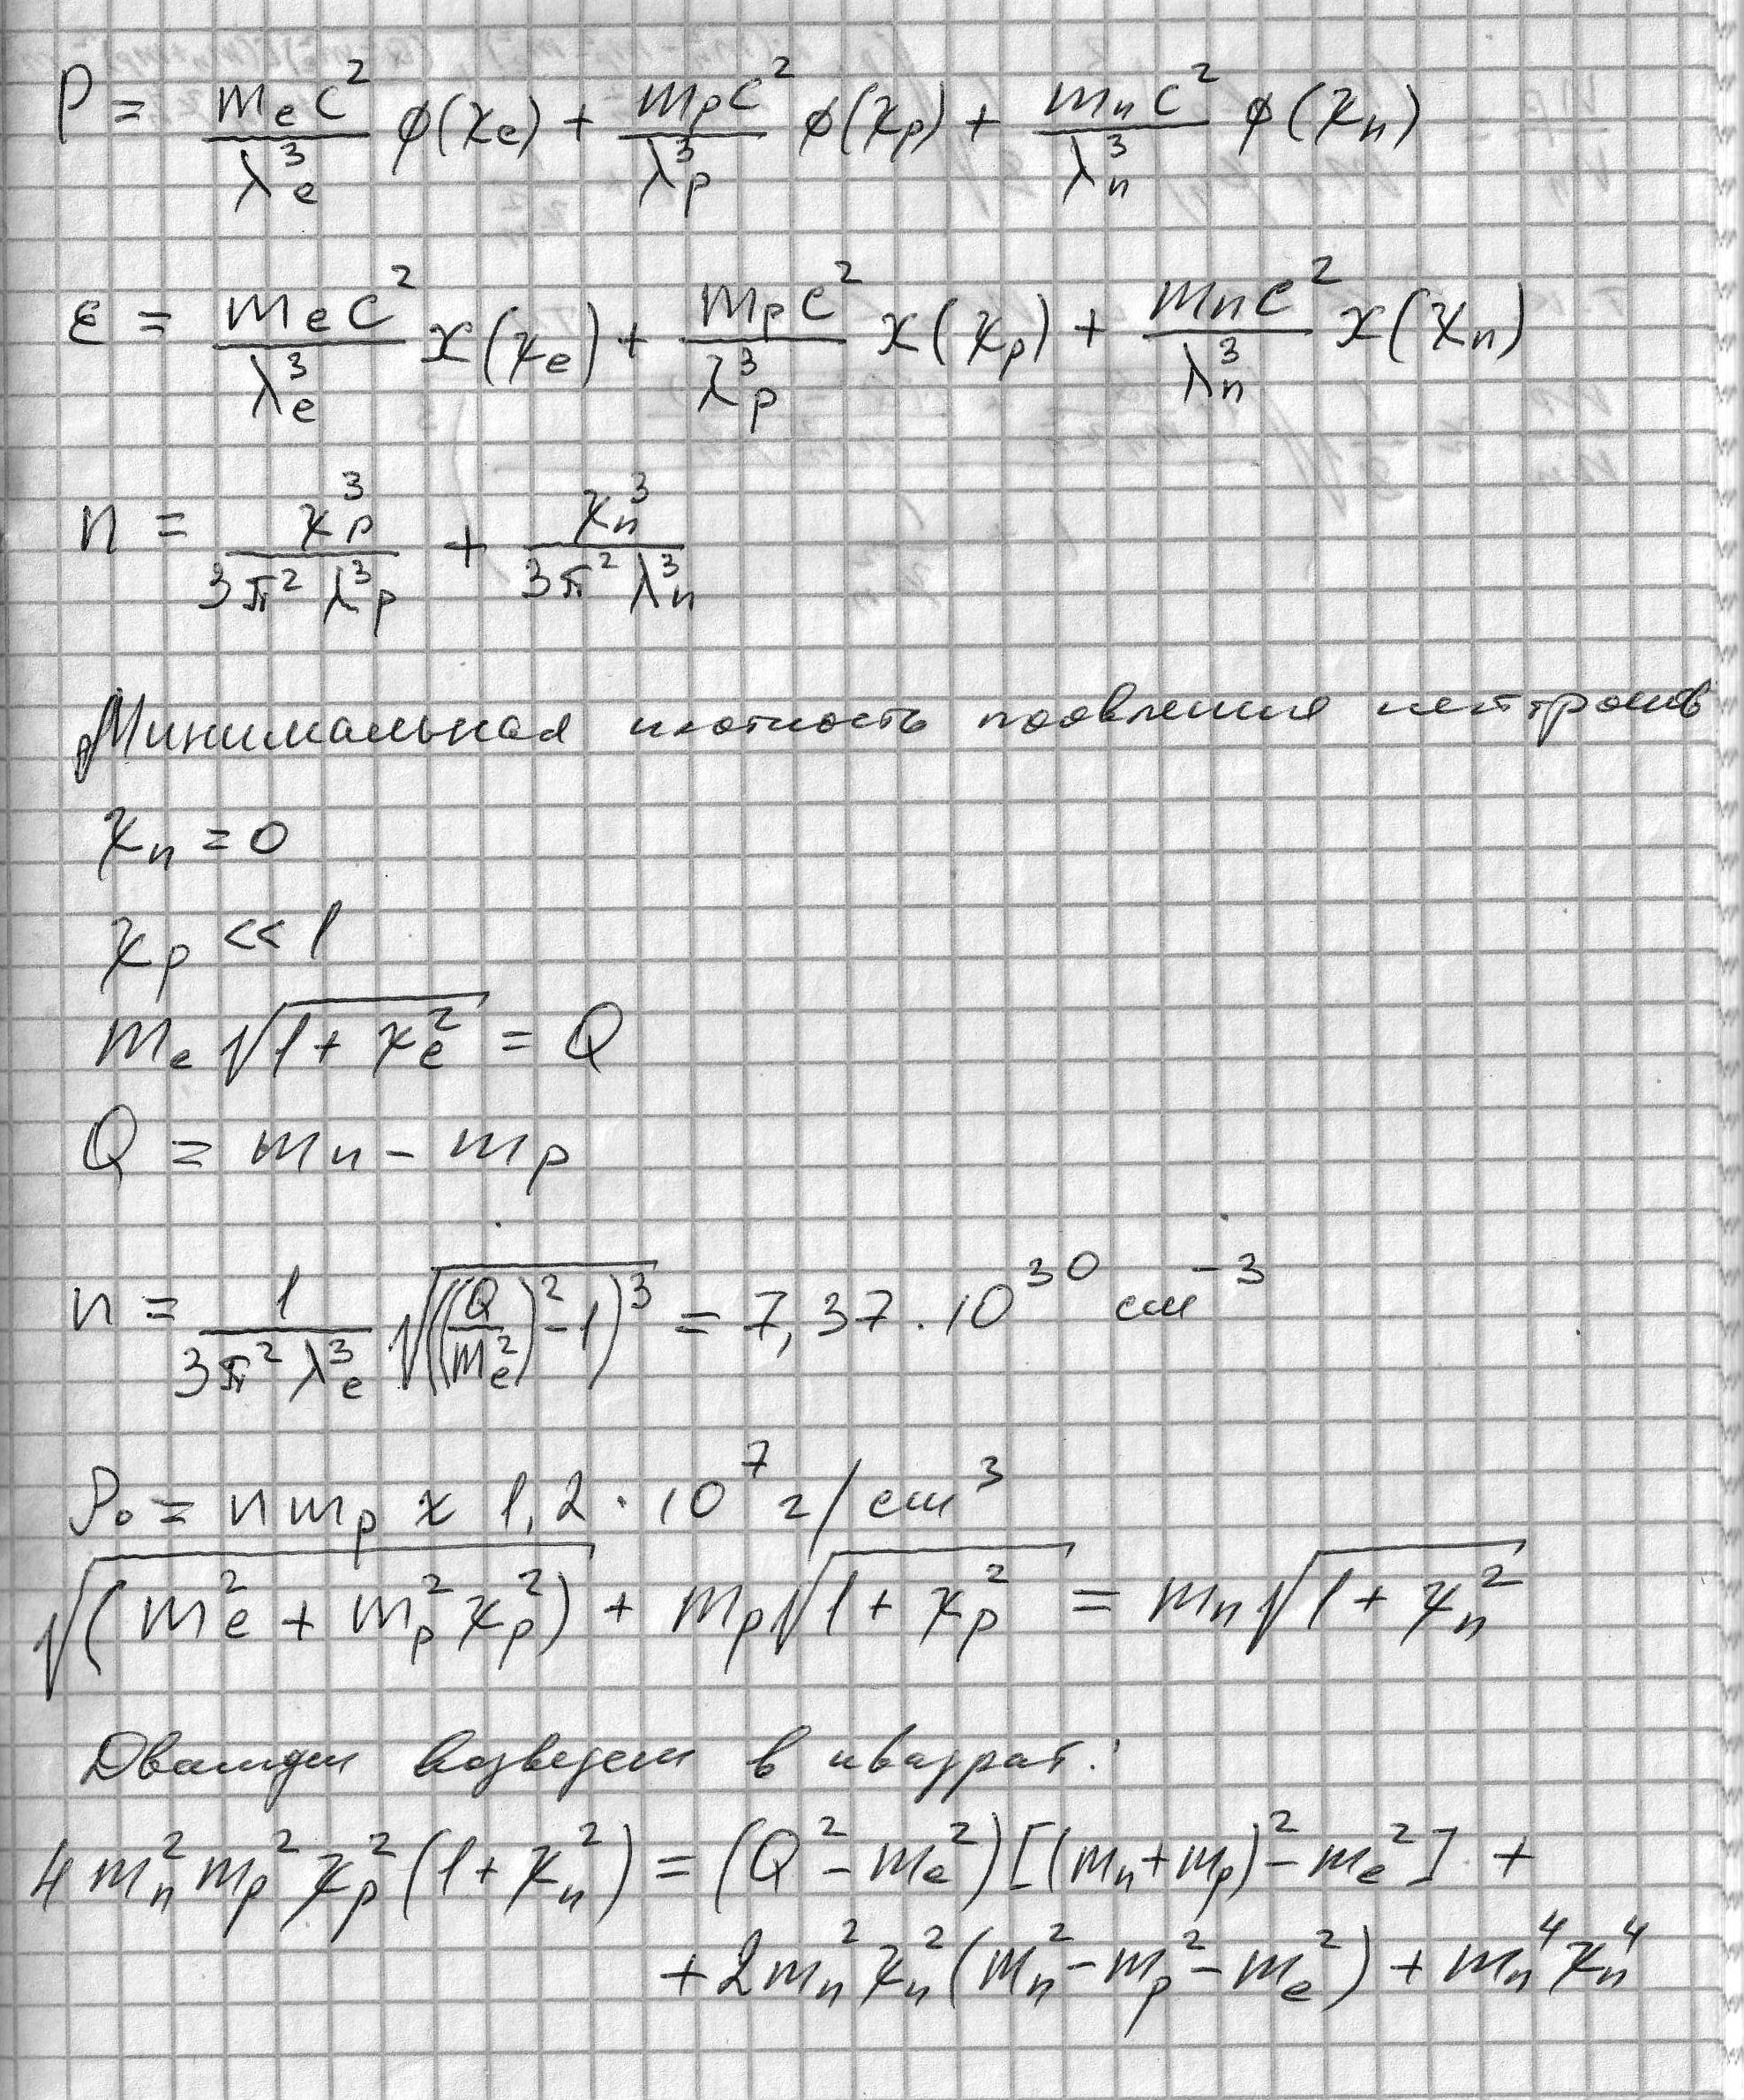 P = m_e c²/λ_e³ φ(x_e) + m_p c²/λ_p³ φ(x_p) + m_n c²/λ_n³ φ(x_n)
ε = m_e c²/λ_e³ χ(x_e) + m_p c²/λ_p³ χ(x_p) + m_n c²/λ_n³ χ(x_n)
n = x_p³/(3π² λ_p³) + x_n³/(3π² λ_n³)
Минимальная плотность появления нейтронов
x_n = 0
x_p << 1
m_e √(1 + x_e²) = Q
Q = m_n - m_p
n = 1/(3π² λ_e³) √((Q/m_e²)² - 1)³ = 7,37 · 10³⁰ см⁻³
ρ₀ = n m_p x 1,2 · 10⁷ г/см³
√(m_e² + m_p² x_p²) + m_p √(1 + x_p²) = m_n √(1 + x_n²)
Дважды возведем в квадрат:
4 m_n² m_p² x_p² (1 + x_n²) = (Q² - m_e²)[(m_n + m_p)² - m_e²] +
+ 2 m_n² x_n² (m_n² - m_p² - m_e²) + m_n⁴ x_n⁴